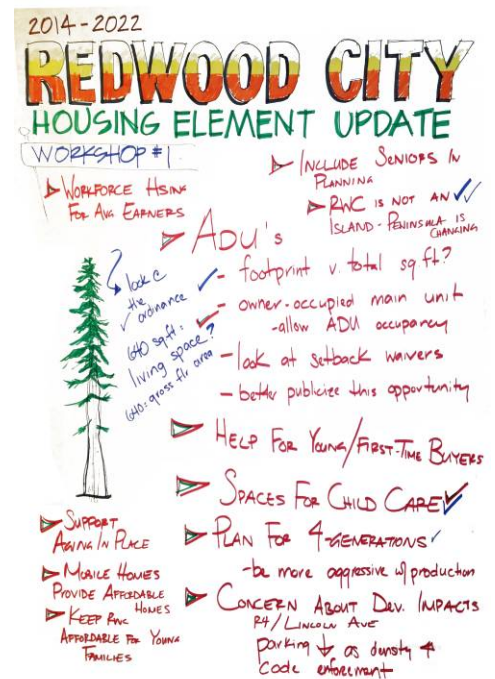 2014-2022
REDWOOD CITY
HOUSING ELEMENT UPDATE
WORKSHOP #1
WORKFORCE HSING
FOR AVG EARNERS
INCLUDE SENIORS IN
PLANNING
RWC IS NOT AN
ISLAND - PENINSULA IS
CHANGING
ADU's
- footprint v. total sq ft?
- owner-occupied main unit
- allow ADU occupancy
- look at setback waivers
- better publicize this opportunity
look @
the
ordinance
640 sq ft =
living space?
640 = gross flr area
HELP FOR YOUNG/FIRST-TIME BUYERS
SPACES FOR CHILD CARE
PLAN FOR 4-GENERATIONS
- be more aggressive w/ production
CONCERN ABOUT DEV. IMPACTS
R4/LINCOLN AVE
parking ↓ as density ↑
code enforcement
SUPPORT
AGING IN PLACE
MOBILE HOMES
PROVIDE AFFORDABLE
HOMES
KEEP RWC
AFFORDABLE FOR YOUNG
FAMILIES